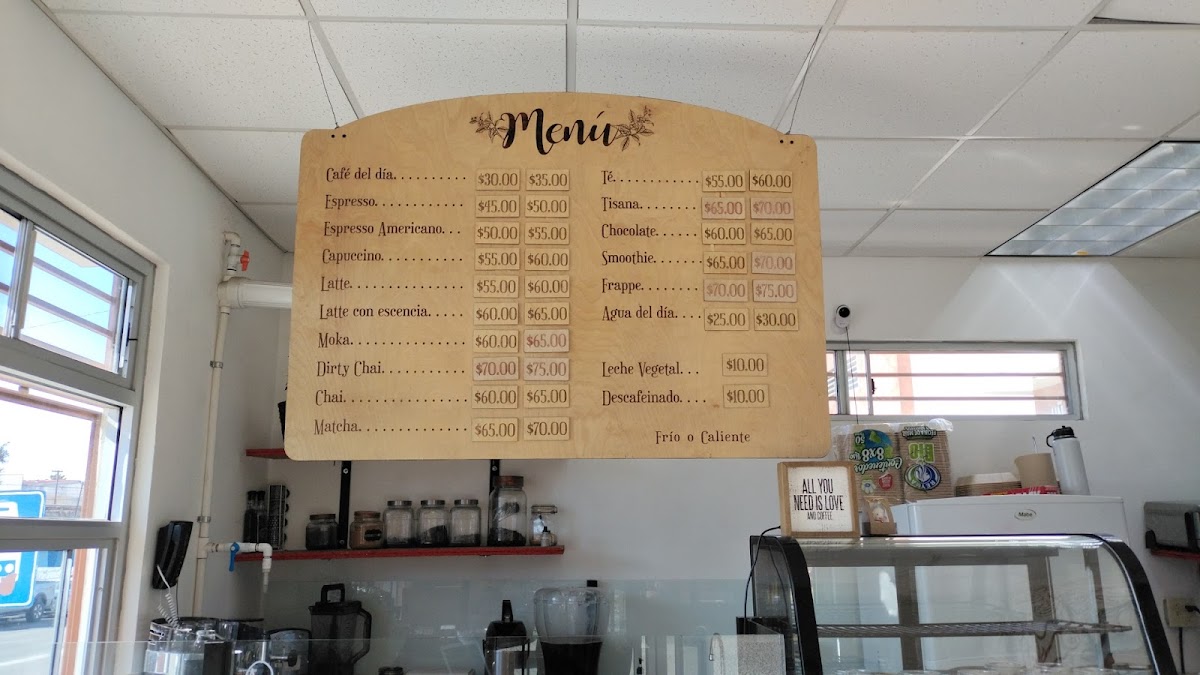 Menú
Café del día.......... $30.00 $35.00
Espresso............ $45.00 $50.00
Espresso Americano... $50.00 $55.00
Capuccino........... $55.00 $60.00
Latte............... $55.00 $60.00
Latte con escencia..... $60.00 $65.00
Moka............... $60.00 $65.00
Dirty Chai........... $70.00 $75.00
Chai................ $60.00 $65.00
Matcha.............. $65.00 $70.00
Té............ $55.00 $60.00
Tisana........ $65.00 $70.00
Chocolate...... $60.00 $65.00
Smoothie...... $65.00 $70.00
Frappe........ $70.00 $75.00
Agua del día.... $25.00 $30.00
Leche Vegetal... $10.00
Descafeinado.... $10.00
Frío o Caliente
ALL YOU
NEED IS LOVE
AND COFFEE.
Contenedor
8x8
50
BIO
Mabe